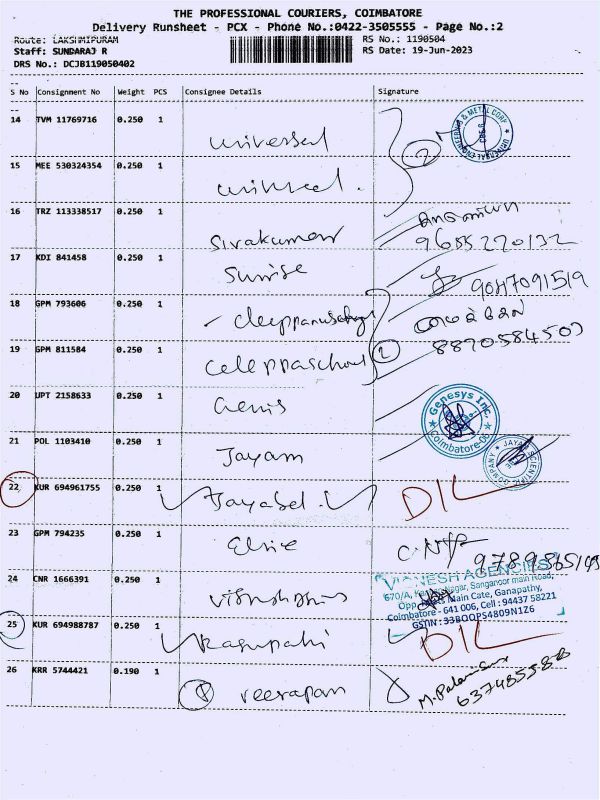 THE PROFESSIONAL COURIERS, COIMBATORE
Delivery Runsheet - PCX - Phone No.:0422-3505555 - Page No.:2
Route: LAKSHMIPURAM RS No.: 1190504
Staff: SUNDARAJ R RS Date: 19-Jun-2023
DRS No.: DCJB119050402
S No Consignment No Weight PCS Consignee Details Signature
14 TVM 11769716 0.250 1 universal 2
UNIVERSAL ENGINEERING & METAL CORP
15 MEE 530324354 0.250 1
16 TRZ 113338517 0.250 1 Sivakumar 9655220132
17 KDI 841458 0.250 1 Sunrise 9047091519
18 GPM 793606 0.250 1
19 GPM 811584 0.250 1 2 8870584507
20 UPT 2158633 0.250 1 Genis
Genesys Inc. Coimbatore-06
21 POL 1103410 0.250 1 Jayam
JAYAM SCIENTIFIC COMPANY
22 KUR 694961755 0.250 1 Jayabel DIL
23 GPM 794235 0.250 1
24 CNR 1666391 0.250 1
VIGNESH AGENCIES
670/A, Sanganoor main Road,
Opp. Main Gate, Ganapathy,
Coimbatore - 641 006, Cell : 94437 58221
GSTIN : 33BOOPS4809N1Z6
25 KUR 694988787 0.250 1 Kasupathi DIL
26 KRR 5744421 0.190 1 veerapan